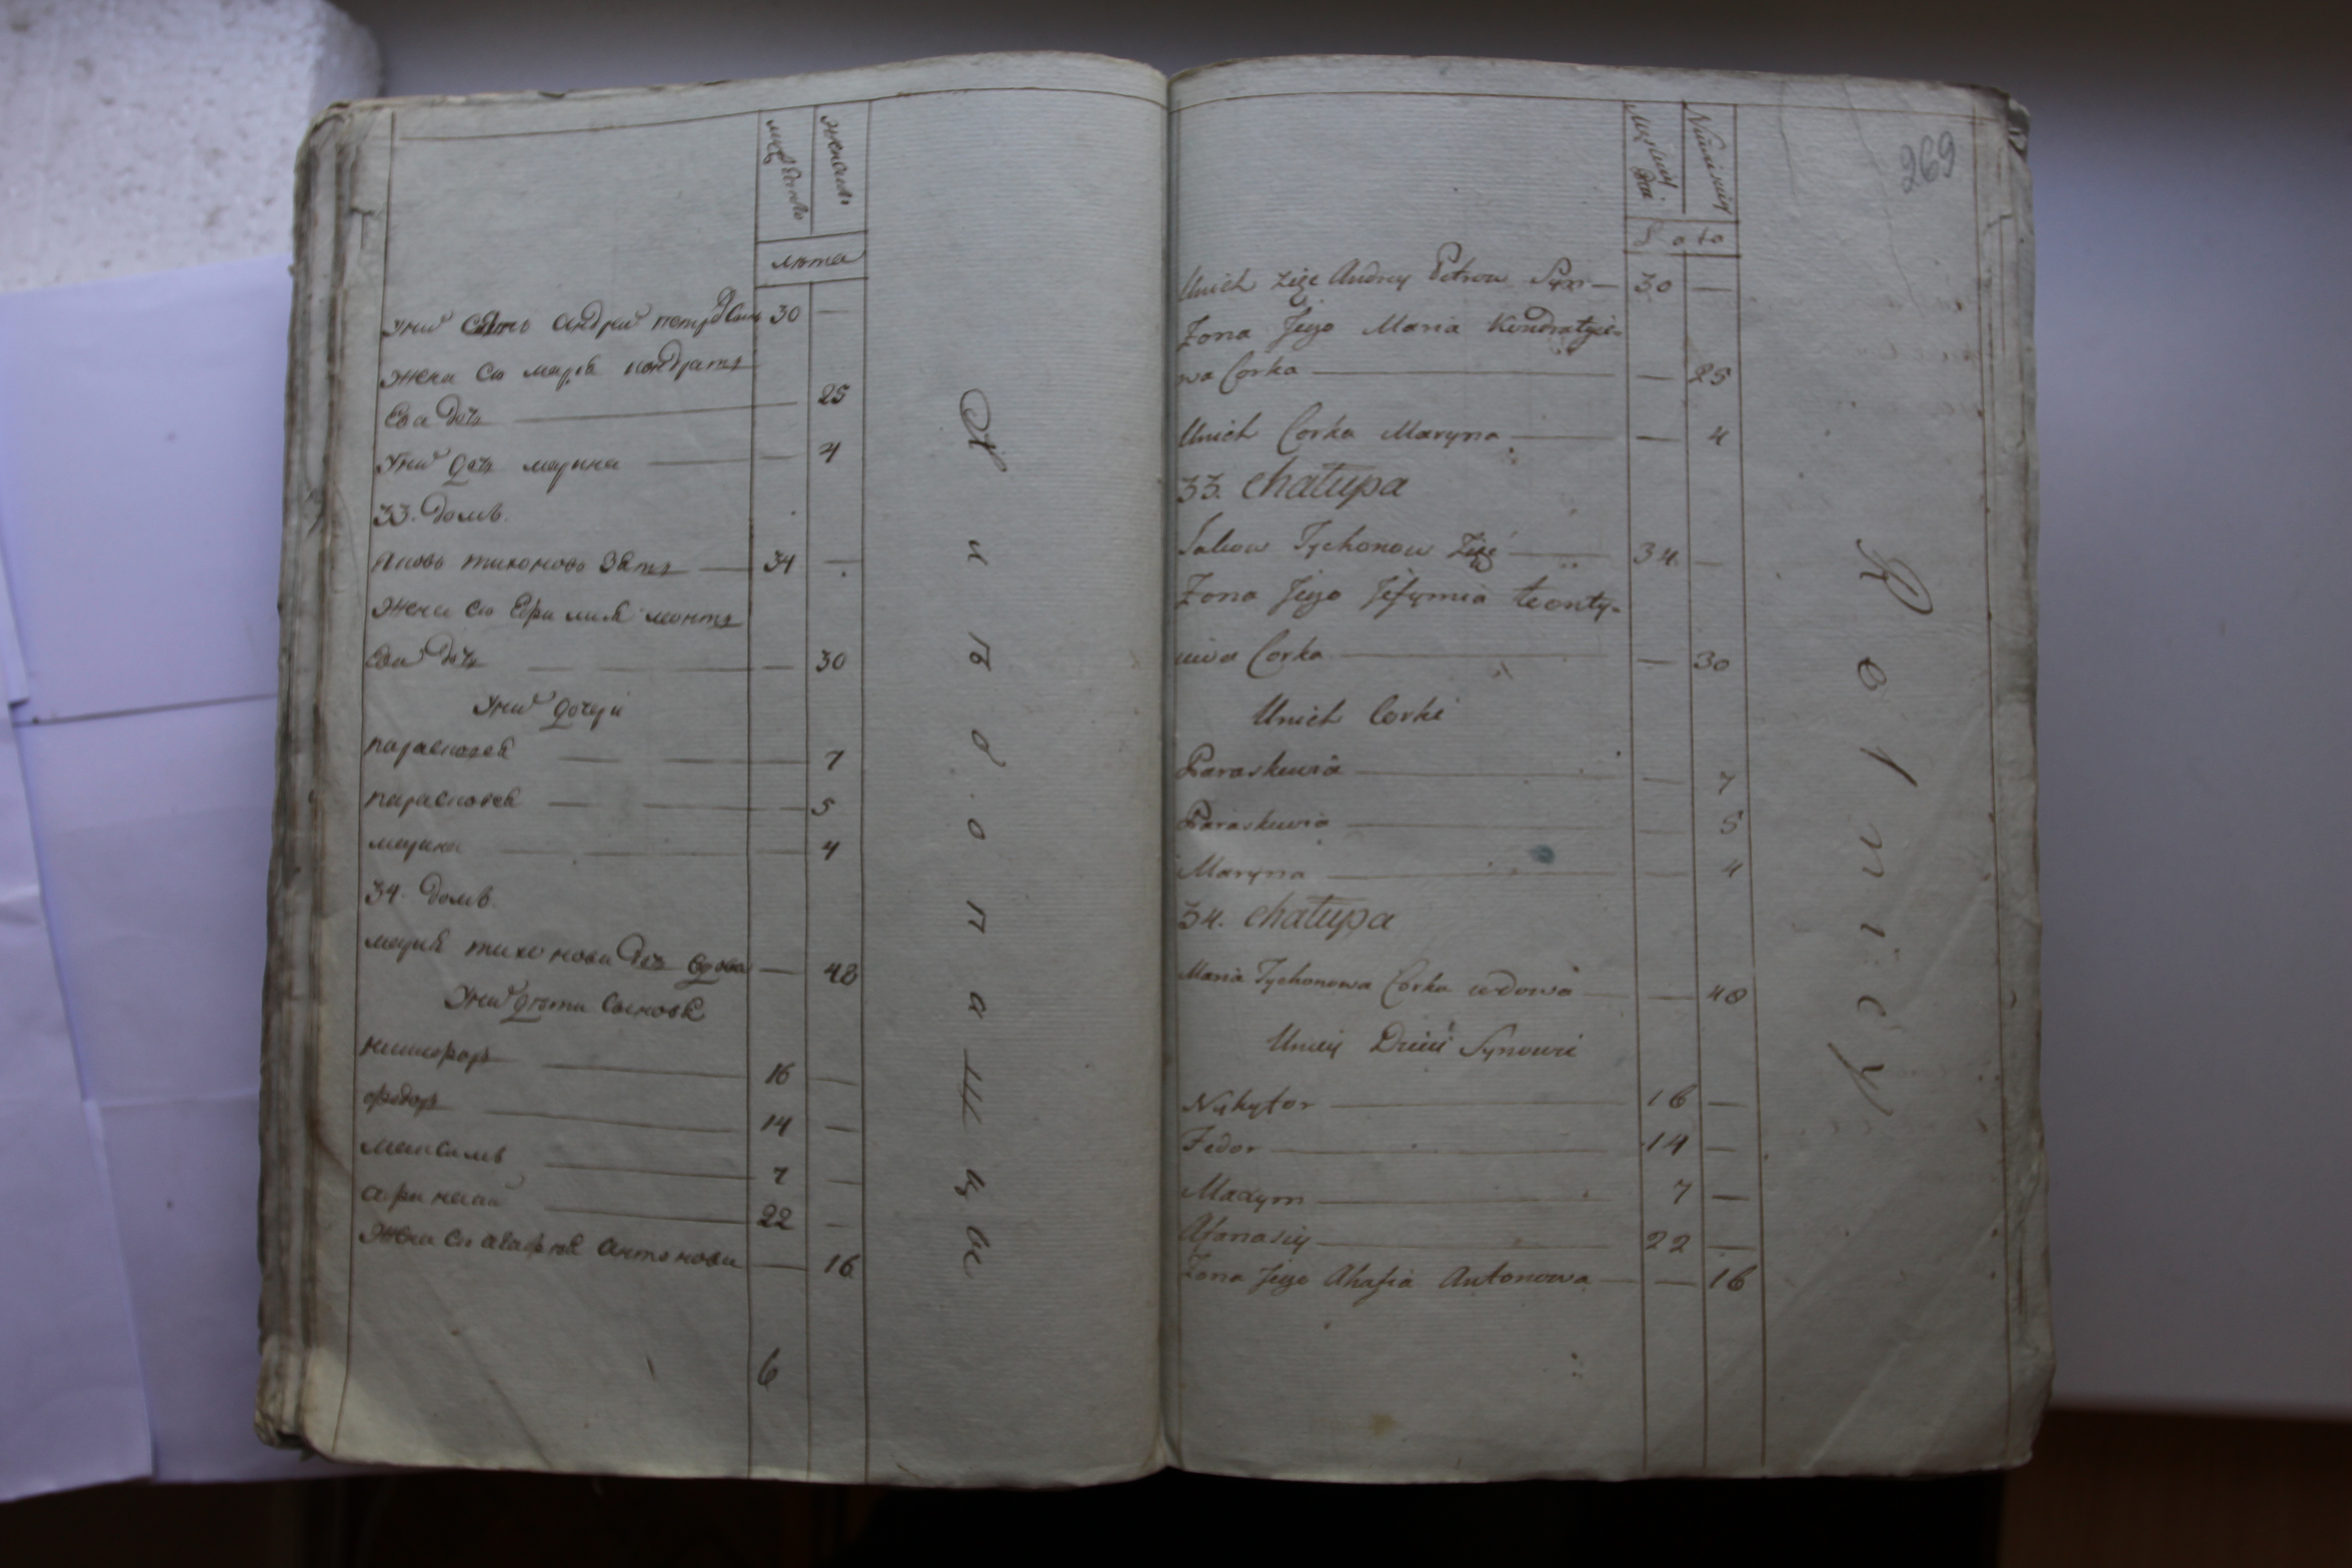 мужеска
женска
лѣта
У них зять Андрей Петров сын 30 —
жена ею Мария Кондрать
ева дочь — 25
У них дочь Марина — 4
33. Домъ.
Яковъ Тихоновъ зять — 34 —
жена ею Ефимия Леонть
ева дочь — 30
У них дочери
Параскевия — 7
Параскевия — 5
Марина — 4
34. Домъ
Мария Тихонова дочь вдова — 48
У них дѣти сыновя
Никифор — 16 —
Федор — 14 —
Максимъ — 7 —
Афанасий — 22 —
Жена ею Агафия Антонова — 16
6
Хлѣбопашцы
269
Lata
Unich Zięć Andrey Petrow Syn — 30 —
Żona Jego Maria Kondratyie-
wa Corka — 25
Unich Corka Maryna — 4
33. Chałupa
Jakow Tychonow Zięć — 34. —
Żona Jego Jefymia Leonty-
iewa Corka — 30
Unich Corki
Paraskewia — 7
Paraskewia — 5
Maryna — 4
34. Chałupa
Maria Tychonowa Corka wdowa — 48
Unieij Dzieci Synowie
Nykyfor — 16 —
Fedor — 14 —
Maxym — 7 —
Afonasiy — 22 —
Żona Jego Ahafia Antonowa — 16
Rolnicy